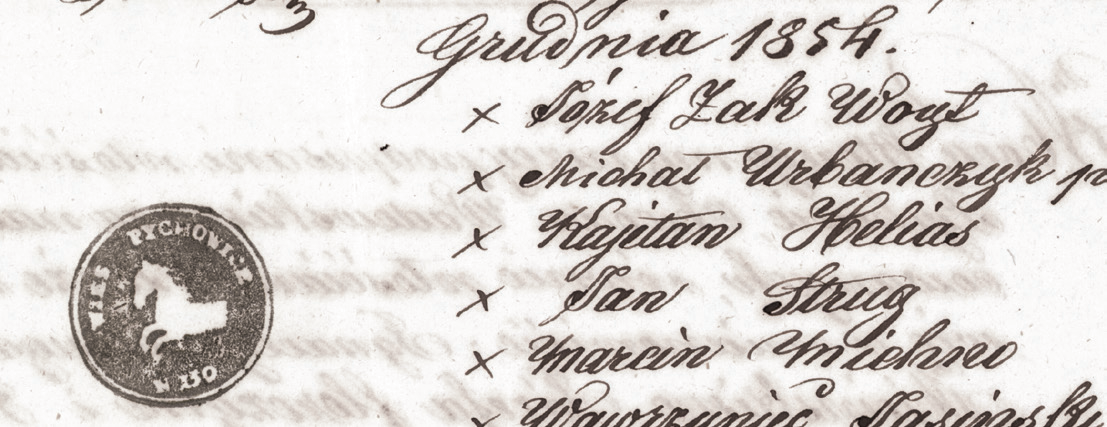 Grudnia 1854.
x Józef Żak Woyt
x Michał Urbanczyk
x Kajetan Helias
x Jan Strug
x Marcin Michno
x Wawrzyniec Jasiński
WIES PYCHOWICE
N 130